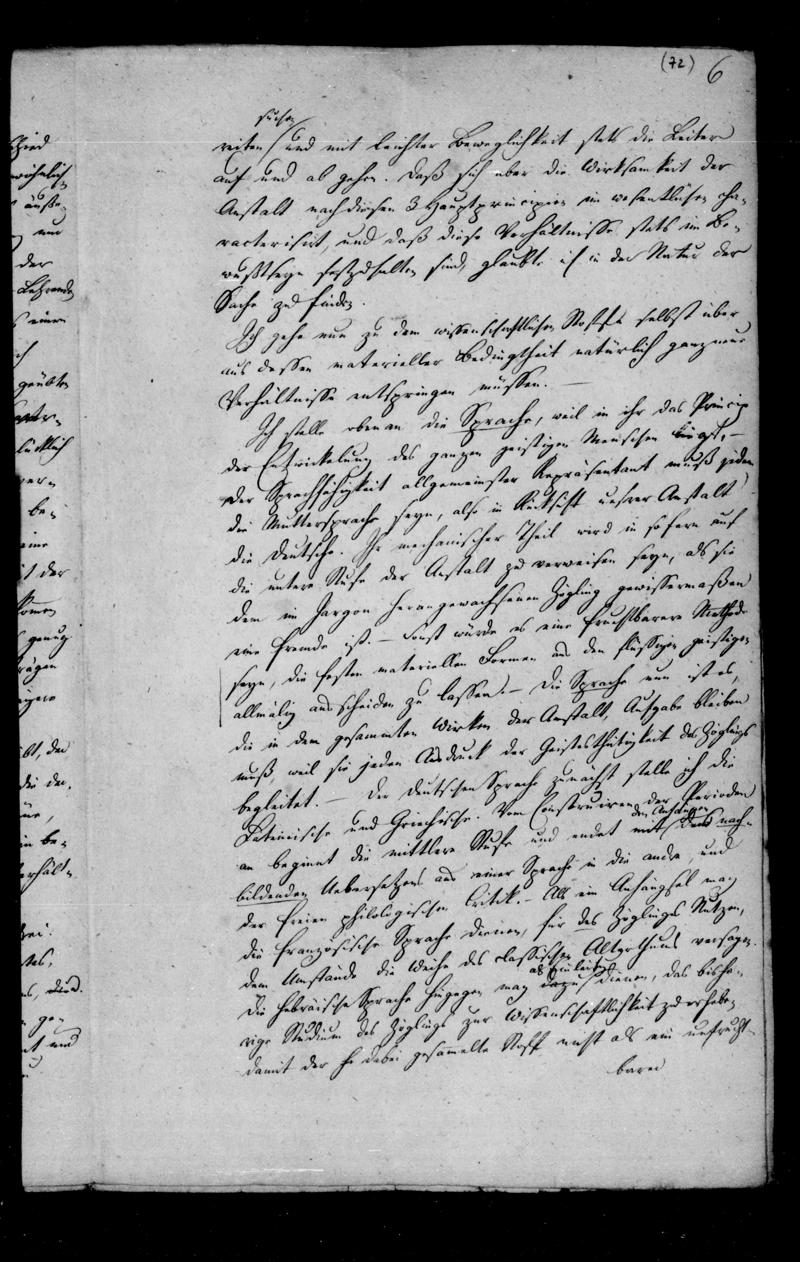 (72) 6
suchen
reiten und mit leichter Beweglichkeit stets die Leiter
auf und ab gehen. Daß sich aber die Wirksamkeit der
Anstalt nach diesen 3 Hauptprincipien im wesentlichen cha-
racterisirt, und daß diese Verhältnisse stets im Be-
wußtseyn festzuhalten sind, glaubte ich in der Natur der
Sache zu finden.
Ich gehe nun zu dem wissenschaftlichen Stoffe selbst über
aus dessen materieller Bedingtheit natürlich ganz neue
Verhältnisse entspringen müssen. —
Ich stelle oben an die Sprache, weil in ihr das Princip
der Entwickelung des ganzen geistigen Menschen liegt, —
der Sprachfähigkeit allgemeinster Repräsentant muß jedem
die Muttersprache seyn, also in Rücksicht unsrer Anstalt
die deutsche. Ihr mechanischer Theil wird in so fern auf
die untere Stufe der Anstalt zu verweisen seyn, als sie
dem im Jargon herangewachsenen Zögling gewissermaßen
eine fremde ist. — Sonst würde es eine fruchtbarere Methode
seyn, die festen materiellen Formen aus den flüssigen geistigen
allmälig ausscheiden zu lassen. — Die Sprache nun ist es,
die in dem gesammten Wirken der Anstalt, Aufgabe bleiben
muß, weil sie jeden Ausdruck der Geistesthätigkeit des Zöglings
begleitet. — Der deutschen Sprache zunächst stelle ich die
Lateinische und Griechische. Vom Construiren der Perioden
an beginnt die mittlere Stufe und endet mit den Anfängen des nach-
bildenden Uebersetzens aus einer Sprache in die andre, und
der freien philologischen Critik. — Als ein Anhängsel mag
die französische Sprache dienen, für des Zöglings Nutzen,
dem Umstände die Weihe des classischen Alterthums versagen.
Die hebräische Sprache hingegen mag dazu als Einleitung dienen, das bishe-
rige Studium des Zöglings zur Wissenschaftlichkeit zu erheben
damit der dabei gesammelte Stoff nicht als ein unfrucht-
barer